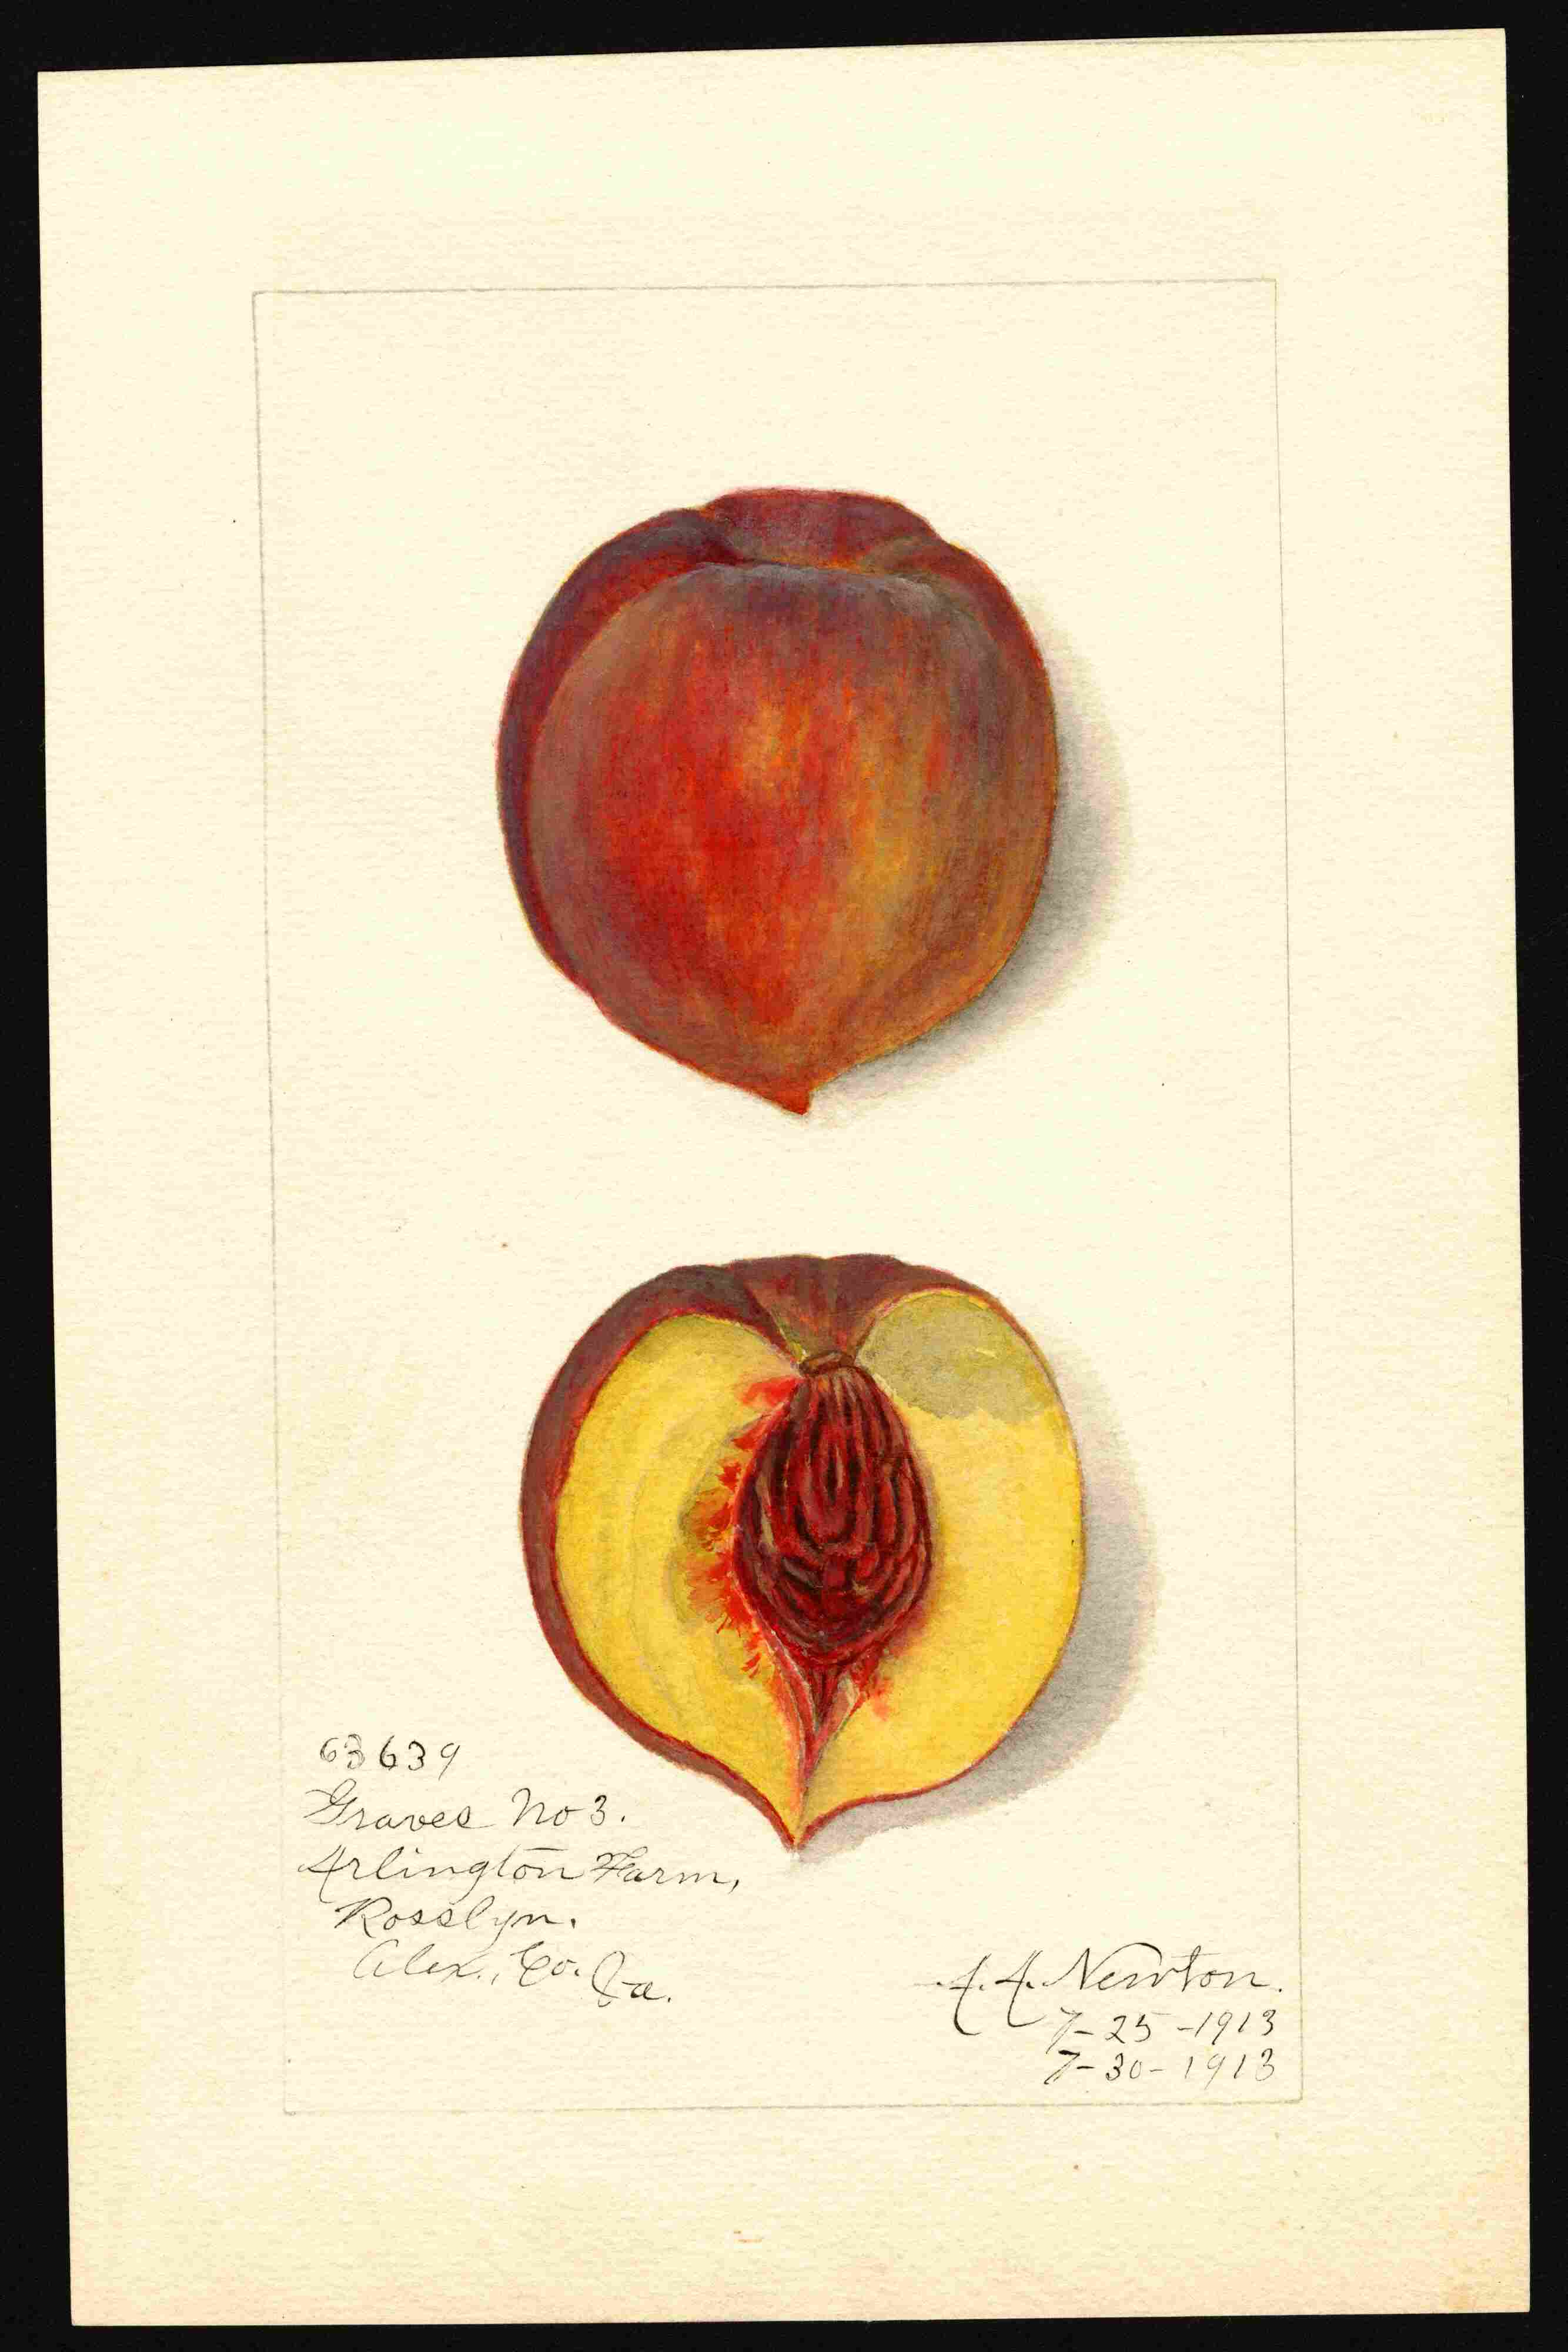 63639
Graves No 3.
Arlington Farm,
Rosslyn.
Alex., Co. Va.
A. A. Newton.
7-25-1913
7-30-1913